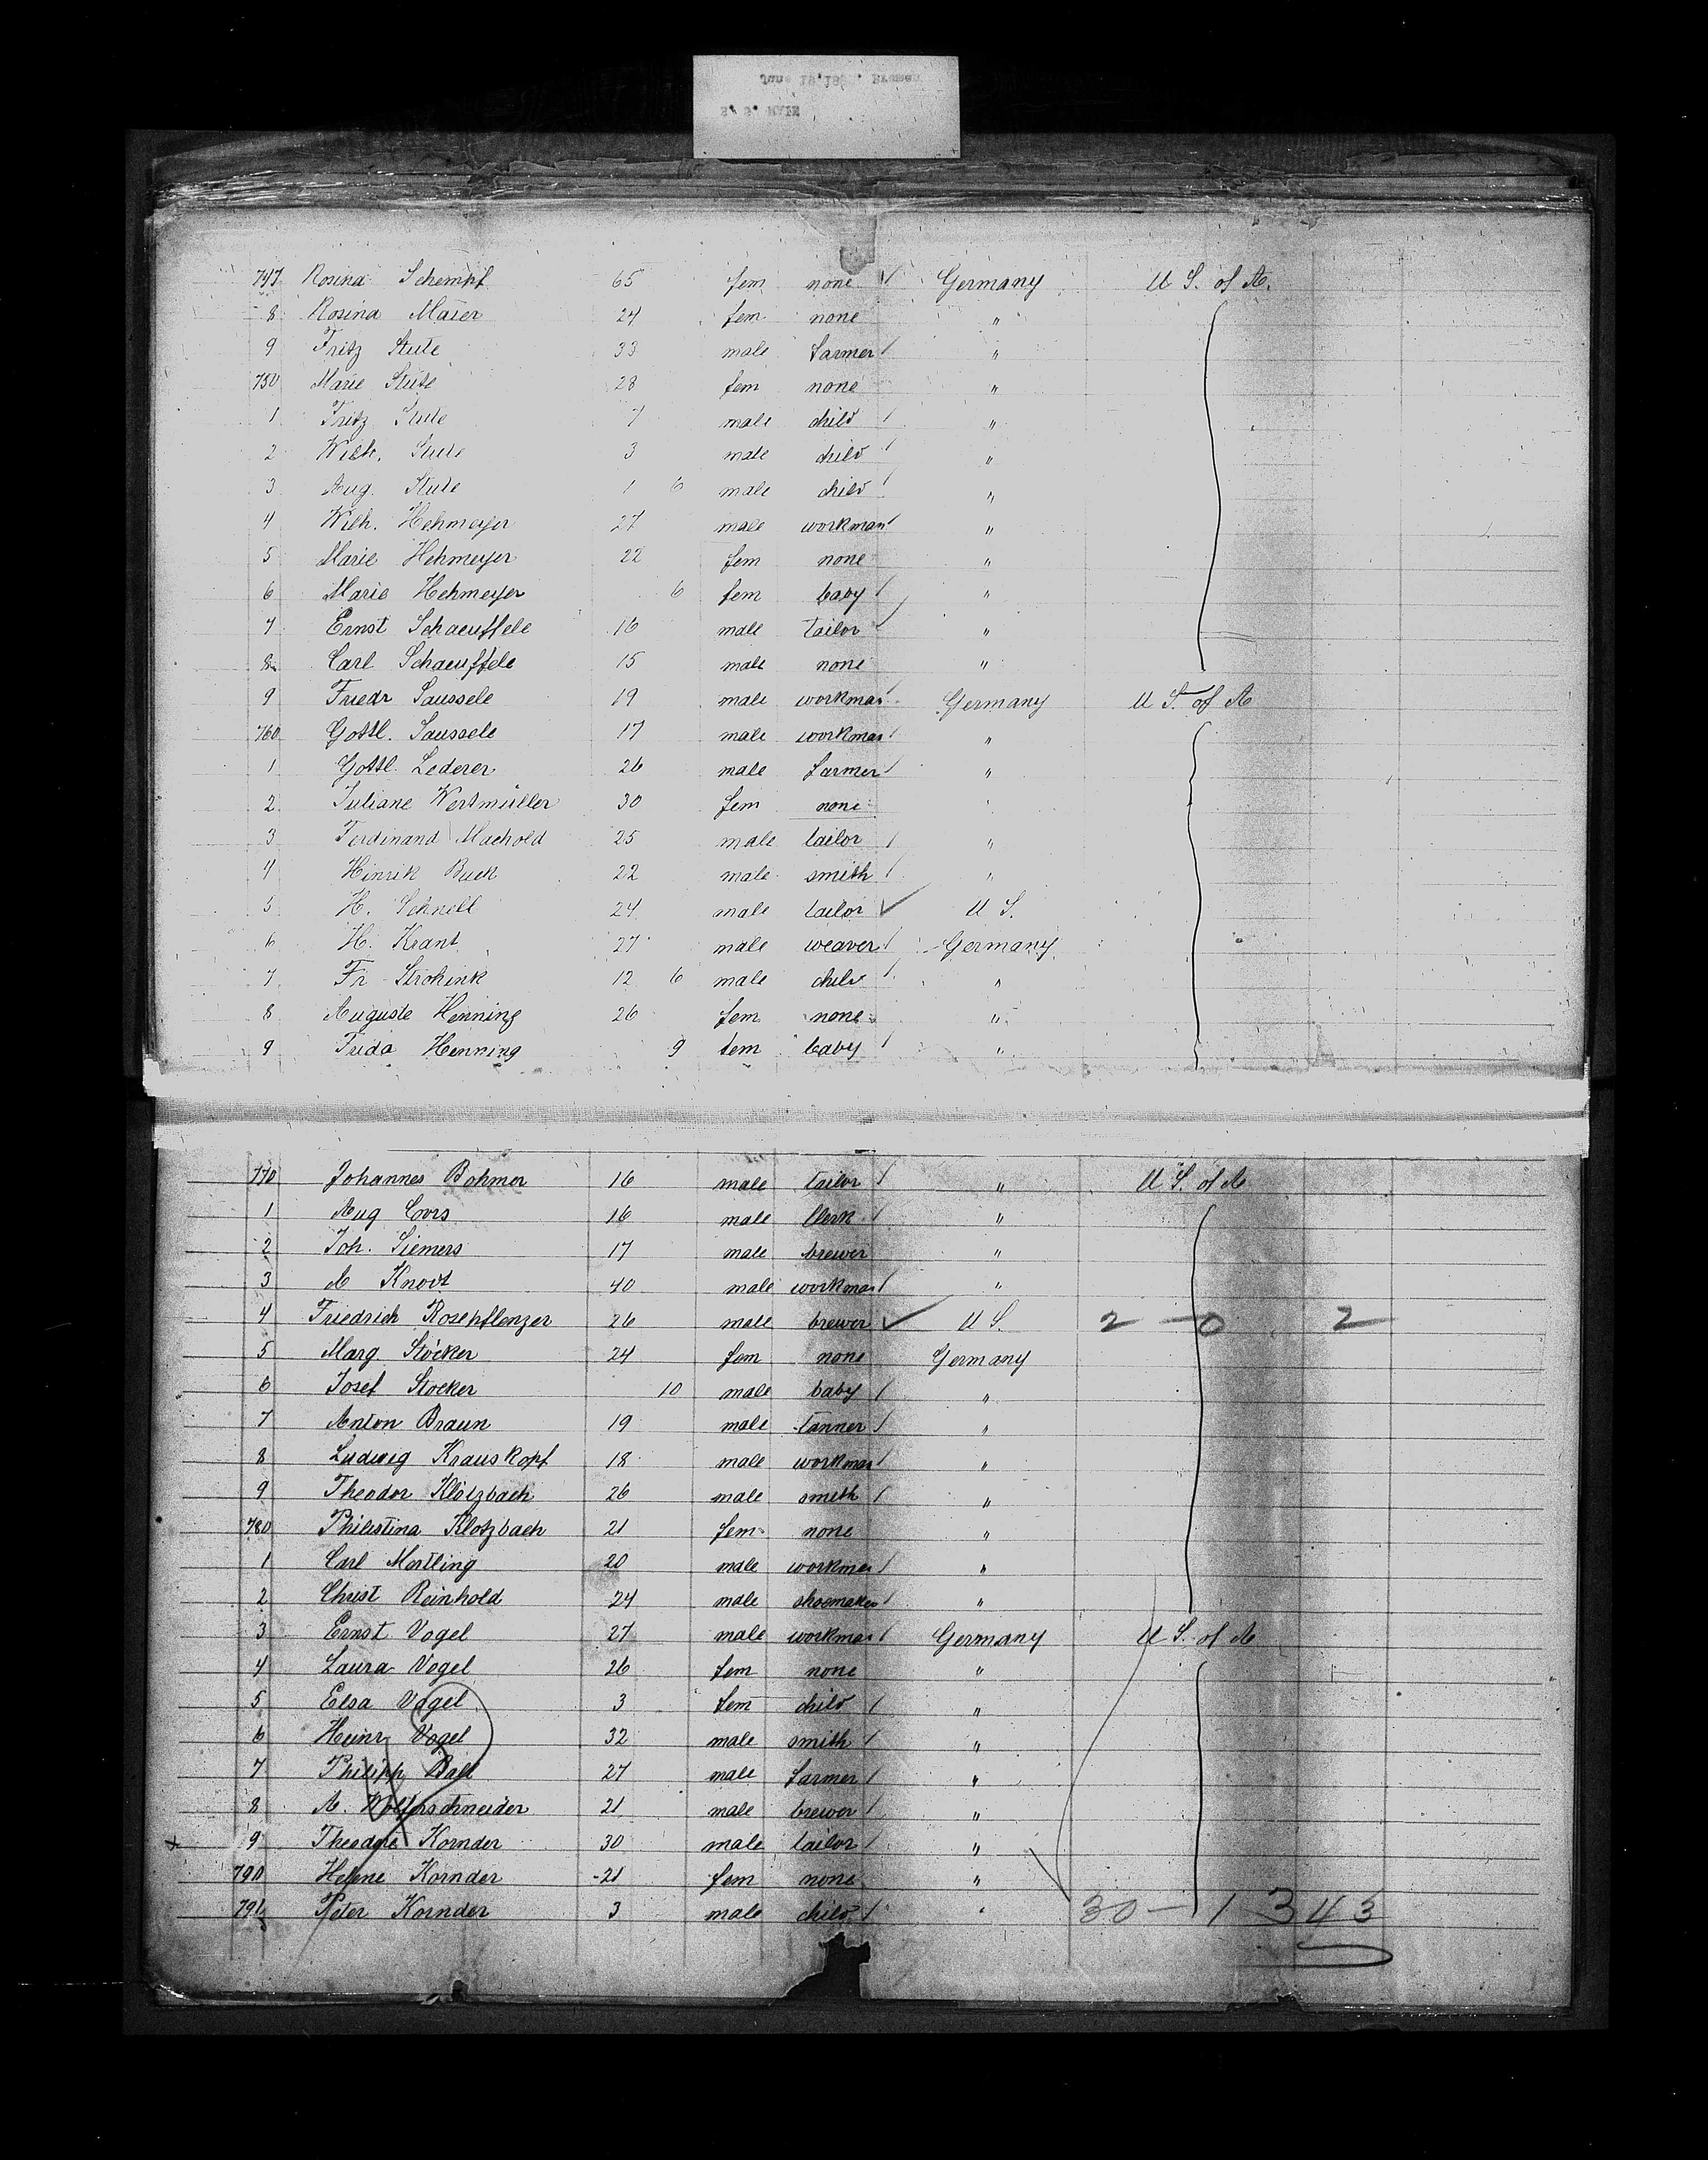 June 18, 18 Bremen
S. S. MAIN
747 Rosina Schempf 65 fem none Germany U S. of A.
8 Rosina Maier 24 fem none "
9 Fritz Stute 33 male farmer "
750 Marie Stute 28 fem none "
1 Fritz Stute 7 male child "
2 Wilh. Stute 3 male child "
3 Aug. Stute 1 6 male child "
4 Wilh. Hehmeyer 27 male workman "
5 Marie Hehmeyer 22 fem none "
6 Marie Hehmeyer 6 fem baby "
7 Ernst Schaeuffele 16 male tailor "
8 Carl Schaeuffele 15 male none "
9 Friedr Saussele 19 male workman Germany U S. of A
760 Gottl. Saussele 17 male workman "
1 Gottl. Lederer 26 male farmer "
2 Juliane Wertmüller 30 fem none "
3 Ferdinand Machold 25 male tailor "
4 Hinrik Buck 22 male smith "
5 H. Schnell 24 male tailor U S.
6 H. Krant 27 male weaver Germany
7 Fr Strokink 12 6 male child "
8 Auguste Henning 26 fem none "
9 Frida Henning 9 fem baby "
770 Johannes Bohmer 16 male tailor " U S. of A
1 Aug Cors 16 male Clerk "
2 Joh. Siemers 17 male brewer "
3 A Knoot 40 male workman "
4 Friedrich Rosepflenzer 26 male brewer U S. 2 - 0 2
5 Marg Stöcker 24 fem none Germany
6 Josef Stöcker 10 male baby "
7 Anton Braun 19 male tanner "
8 Ludwig Krauskopf 18 male workman "
9 Theodor Klotzbach 26 male smith "
780 Philistina Klotzbach 21 fem none "
1 Carl Mertling 20 male workman "
2 Christ Reinhold 24 male shoemaker "
3 Ernst Vogel 27 male workman Germany U S. of A
4 Laura Vogel 26 fem none "
5 Elsa Vogel 3 fem child "
6 Heinr Vogel 32 male smith "
7 Philipp Ball 27 male farmer "
8 A. Wolferschneider 21 male brewer "
x 9 Theodore Kornder 30 male tailor "
790 Helene Kornder 21 fem none "
791 Peter Kornder 3 male child " 30 - 1 343